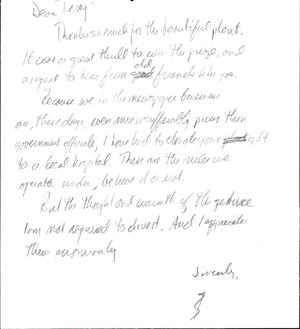 Dear Terry:
Thanks so much for the beautiful plant.
It was a great thrill to win the prize, and
as great to hear from old
friends like you.
Because we in the newspaper business
are, these days, even more insufferably pious than
government officials, I have had to donate your gift
to a local hospital. These are the rules we
operate under, believe it or not.
But the thought and warmth of the gesture
I am not required to divest. And I appreciate
them enormously
Sincerely,